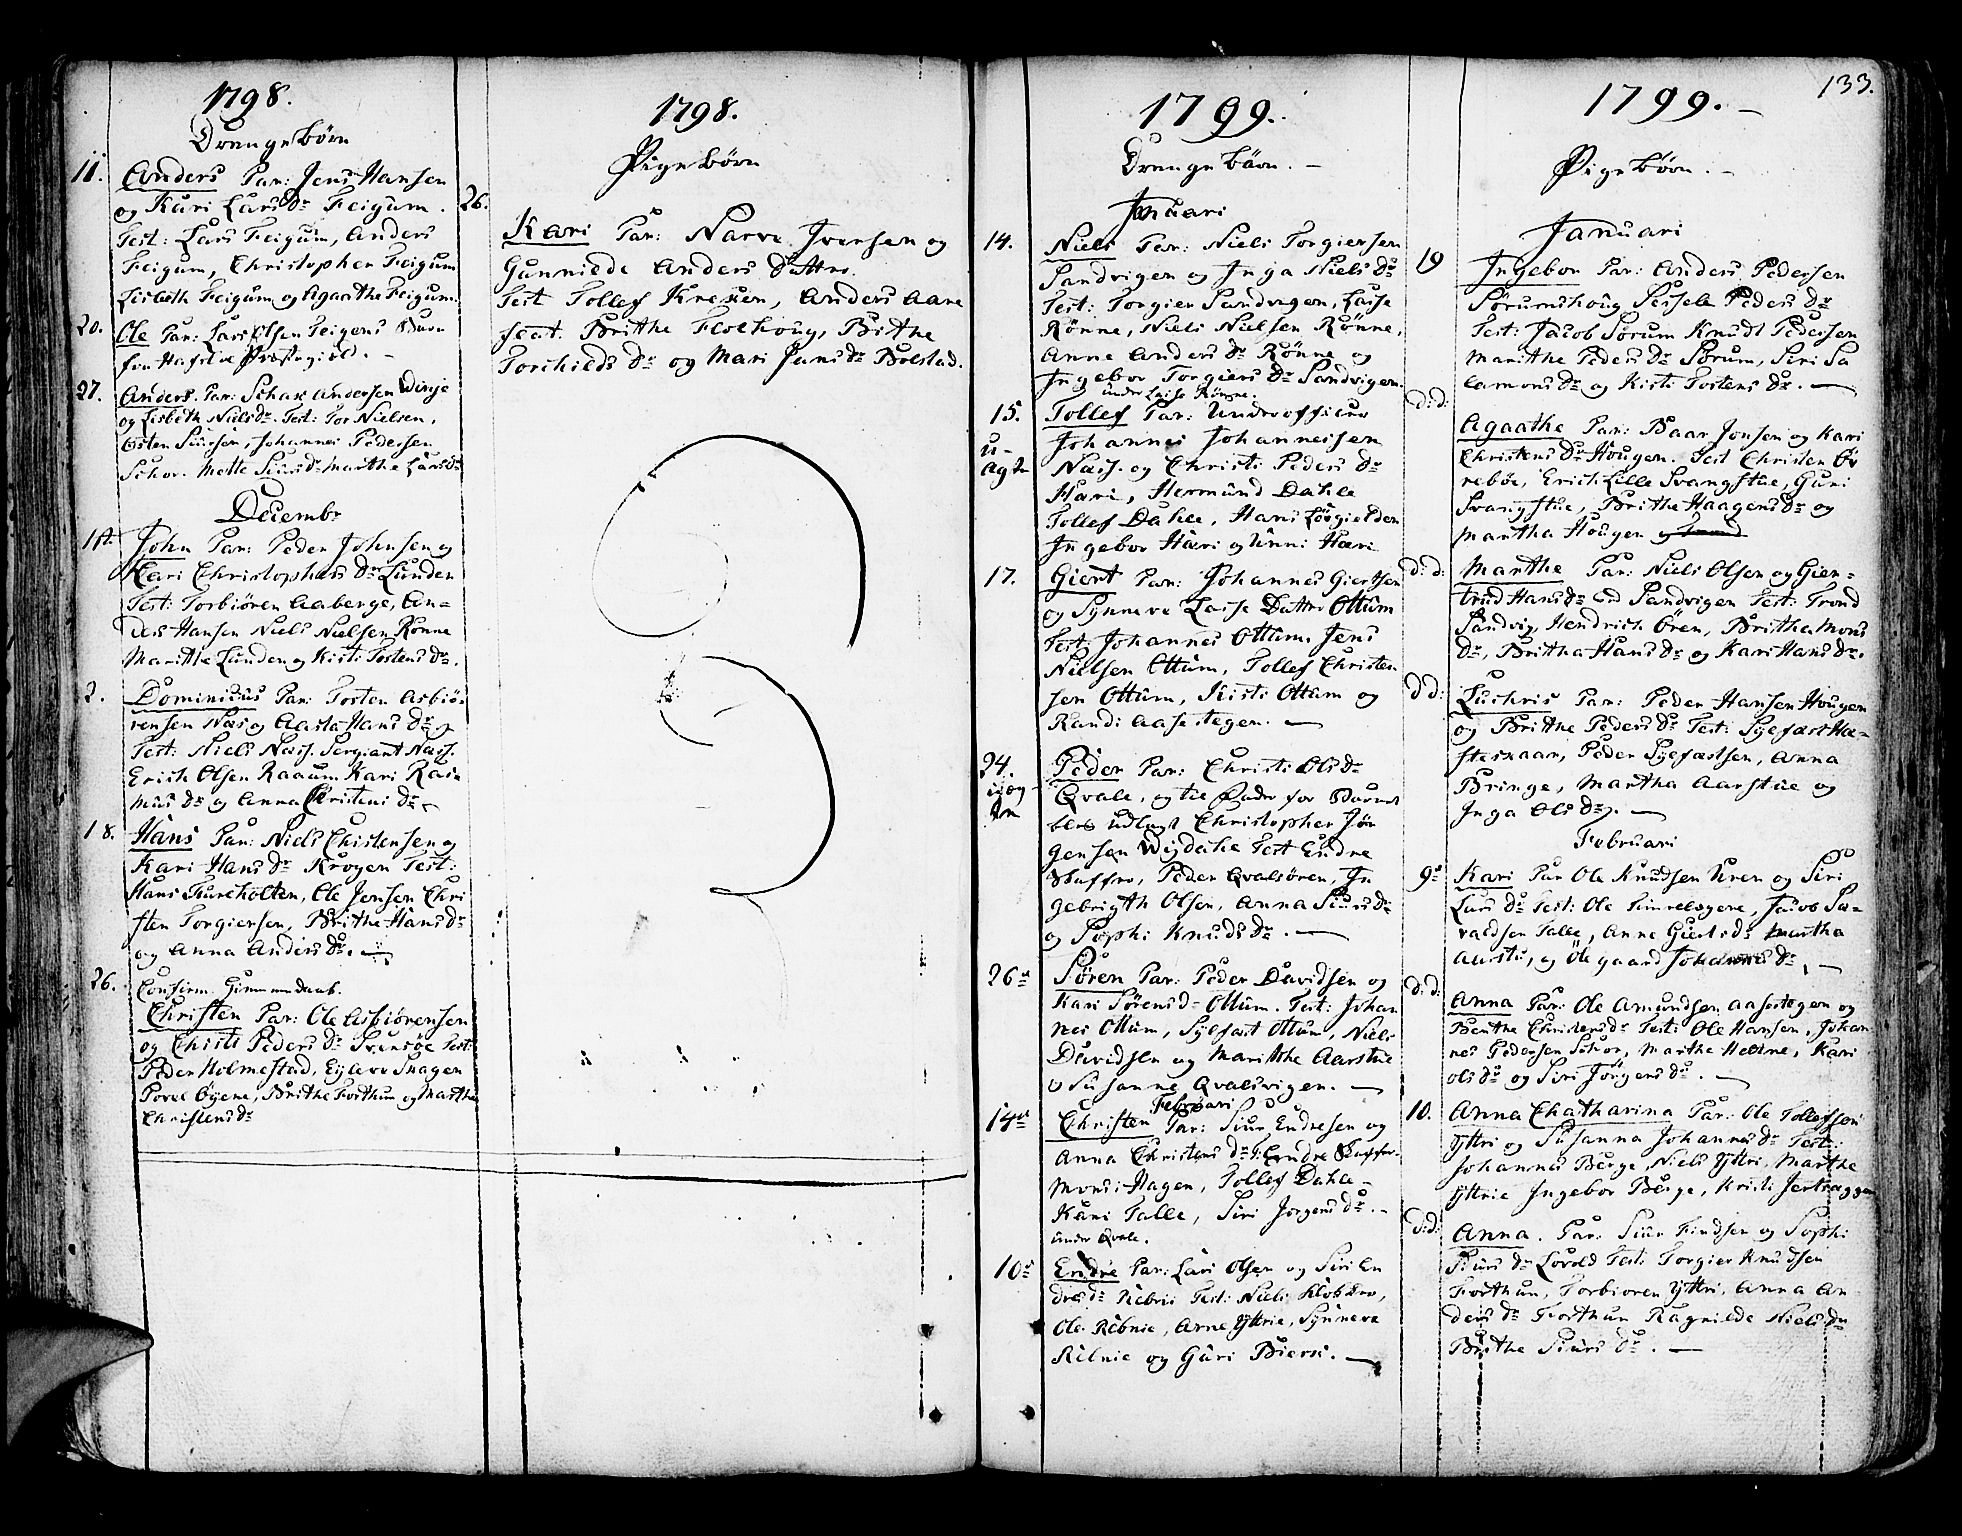 1798.
Drenge børn
11. Anders Par: Jens Hansen
og Kari Lars Dr Feigum.
Test: Lars Feigum, Anders
Feigum, Christopher Feigum
Lisbeth Feigum og Agaathe Feigum.
20. Ole Par: Lars Olsen Feigens Barn
fra Hafsloe Præstegield.
27. Anders. Par: Schak Andersen
og Lisbeth Nielsdr. Test: Tor Nielsen,
Østen Siursen, Johannes Pedersen
Schor. Mette Siursdr Marthe Larsdr
Decembr
1st. John Par: Peder Johnsen og
Kari Christophers Dr Lunden
Test: Torbiören Aaberge, An=
ders Hansen Niels Nielsen Rönne
Maritthe Lunden og Kisti Tostens Dr.
2. Dominicus Par: Tosten Asbiö=
rensen Næs og Aasta Hans Dr
Test: Niels Næss. Sergiant Næss.
Erich Olsen Raaum Kari Ras=
mus Dr og Anna Christens Dr
18. Hans Par: Niels Christensen og
Kari Hans Dr Krogen Test:
Hans Fureholten, Ole Jensen Chri
sten Torgiersen, Brithe Hans Dr
og Anna Anders Dr.
26. Confirm. Hiemmedaab.
Christen Par: Ole Asbiörensen
og Christi Peders Dr Svensöe Test:
Peder Holmestad, Eylert Snagen
Povel Öyene, Brithe Forthun og Marthe
Christensdr
1798.
Pige børn
26. Kari Par: Narve Iversen og
Gunnilde Anders Datter
Test Tollef Kroken, Anders Aare
Brithe Flolhoug, Brithe
Torchilds Dr og Mari Jens Dr Bolstad.
1799.
Drenge børn.
Januari
14. Niels Par: Niels Torgiersen
Sandvigen og Inga Niels Dr
Test: Torgier Sandvigen, Lasse
Rönne, Niels Nielsen Rönne,
Anne Anders Dr Rönne og
Ingebor Torgiers Dr Sandvigen.
under Lasse Rönne.
15. Tollef Par: Underofficer
Johannes Johannessen
Næss. og Christi Peders Dr
Hæri, Hermund Dahle
Tollef Dahle, Hans
Ingebor Hæri og Unni Hæri
17. Giert Par: Johannes Giertsen
og Synneve Lasse Datter Ottum
Test: Johannes Ottum, Jens
Nielsen Ottum, Tollef Christen
sen Ottum, Kisti Ottum og
Randi Aasestegen.
24. Peder Par: Christi Ols Dr
Qvale, og til Fader for Barnet
blev udlagt Christopher Jör
gensen Wigdahl Test Endre
Skaffer, Peder Qvalsören, In
gebrigth Olsen, Anna Siurs Dr
og Sophi Knuds Dr.
26de Sören Par: Peder Davidsen og
Kari Sörens Dr Ottum. Test: Johan
nes Ottum, Sylfæst Ottum, Niels
Davidsen og Maritthe Aarstue
o Susanne Qvalsvigen.
Februari
14de Christen Par: Siur Endresen og
Anna Christens Dr T: Endre Skaffer.
Mons: Hagen, Tollef Dahle
Kari Talle, Siri Jörgens Dr.
under Qvale.
10de Endre Par: Lars Olsen og Siri En
dresdr Ribnie Test: Niels Klokker,
Ole Ribnie, Arne Yttrie, Synneve
Ribnie og Guri Biersi.
1799.
133.
Pige børn.
Januari
19 Ingebor Par: Anders Pedersen
Sörumshoug Sessele Peders Dr
Test: Jacob Sörum Knudt Pedersen
Marithe Peders Dr Sörum, Siri Sa
lamons Dr og Kisti Tostens Dr.
d: d: Agaathe Par: Baar Jonsen og Kari
Christens Dr Hougen. Test Christen Öv
reböe, Erich Lille Svangstue, Guri
Svangstue, Brithe Haagens Dr og
Martha Hougen
d: d: Marthe Par: Niels Olsen og Gier=
trud Hans Dr Sandvigen Test: Trond
Sandvig, Hendrich Ören, Britha Mons
Dr, Brittha Hans Dr og Kari Hans Dr.
d d: Luchris Par: Peder Hansen Hougen
og Brithe Peders Dr Test: Sylfæst Hæ=
stesnaar, Peder Sylfæstsen, Anna
Bringe, Martha Aarstue og
Inga Ols Dr.
Februari
9de Kari Par Ole Knudsen Uren og Siri
Lars Dr Test: Ole Jacob Sa=
valdsen Talle, Anne Giertsdr Martha
Aarstu, og Ölegaard Johannes Dr.
d: d: Anna Par: Ole Amundsen Aasestegen og
Benthe Christens Dr Test: Ole Hansen, Johan
nes Pedersen Schor, Marthe Heltne, Kari
Ols Dr og Siri Jörgens Dr.
10. Anna Chatharina Par: Ole Tollefsen
Yttri og Susanna Johannes Dr Test:
Johannes Berge, Niels Yttri, Marthe
Yttrie Ingebor Berge, Kristi
D: d: Anna. Par: Siur Findsen og Sophi
Siurs Dr Test: Torgier Knudsen
Forthun, Torbioren Yttri, Anna An
ders Dr Forthun Ragnilde Niels Dr
Brithe Siurs Dr.